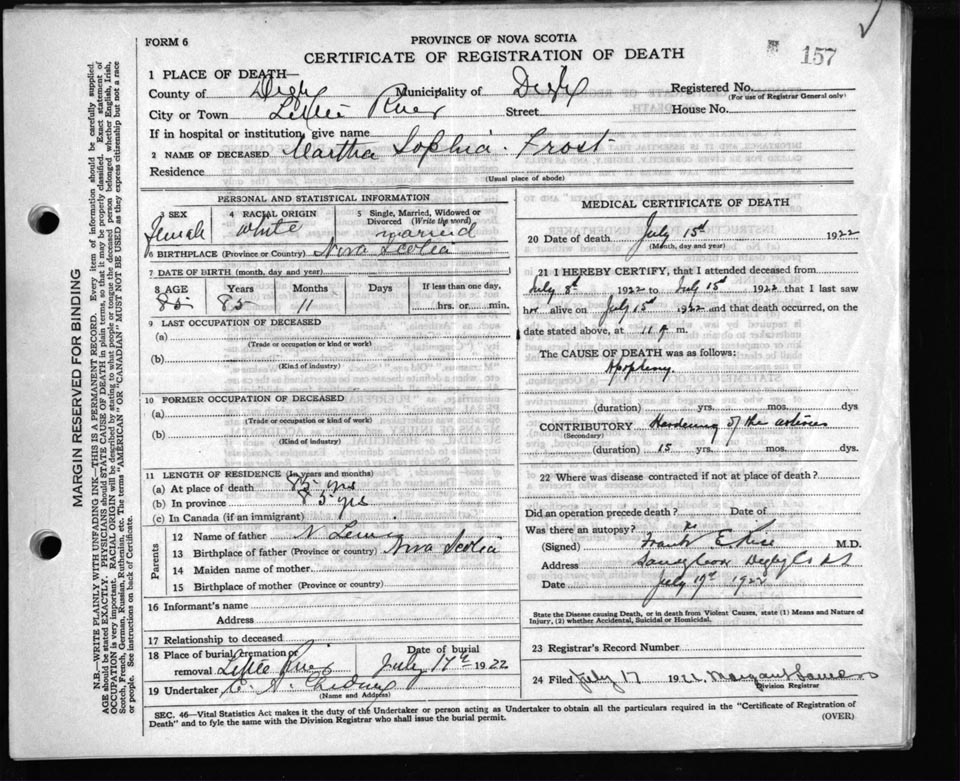 FORM 6
PROVINCE OF NOVA SCOTIA
CERTIFICATE OF REGISTRATION OF DEATH
157
1 PLACE OF DEATH—
County of Digby Municipality of Digby Registered No.
(For use of Registrar General only)
City or Town Little River Street House No.
If in hospital or institution, give name
2 NAME OF DECEASED Martha Sophia Frost
Residence
(Usual place of abode)
PERSONAL AND STATISTICAL INFORMATION
3 SEX 4 RACIAL ORIGIN 5 Single, Married, Widowed or Divorced (Write the word)
female white married
6 BIRTHPLACE (Province or Country) Nova Scotia
7 DATE OF BIRTH (month, day and year)
8 AGE Years Months Days If less than one day,
85 85 11 hrs. or min.
9 LAST OCCUPATION OF DECEASED
(a)
(Trade or occupation or kind or work)
(b)
(Kind of industry)
10 FORMER OCCUPATION OF DECEASED
(a)
(Trade or occupation or kind of work)
(b)
(Kind of industry)
11 LENGTH OF RESIDENCE (In years and months)
(a) At place of death 85 yrs
(b) In province 85 yrs
(c) In Canada (if an immigrant)
Parents
12 Name of father N Lewis
13 Birthplace of father (Province or country) Nova Scotia
14 Maiden name of mother
15 Birthplace of mother (Province or country)
16 Informant's name
Address
17 Relationship to deceased
18 Place of burial, cremation or removal Little River Date of burial July 17th 1922
19 Undertaker
(Name and Address)
MEDICAL CERTIFICATE OF DEATH
20 Date of death July 15th 1922
(Month, day and year)
21 I HEREBY CERTIFY, that I attended deceased from
July 8th 1922 to July 15th 1922 that I last saw
her alive on July 15th 1922 and that death occurred, on the
date stated above, at 11 m.
The CAUSE OF DEATH was as follows:
Apoplexy.
(duration) yrs. mos. dys
CONTRIBUTORY Hardening of the arteries
(Secondary)
(duration) 15 yrs. mos. dys.
22 Where was disease contracted if not at place of death?
Did an operation precede death? Date of
Was there an autopsy? no
(Signed) Frank E Rice M.D.
Address Sandy Cove Digby Co NS
Date July 19th 1922
State the Disease causing Death, or in death from Violent Causes, state (1) Means and Nature of
Injury, (2) whether Accidental, Suicidal or Homicidal.
23 Registrar's Record Number
24 Filed July 17 1922 Margaret
Division Registrar
SEC. 46—Vital Statistics Act makes it the duty of the Undertaker or person acting as Undertaker to obtain all the particulars required in the "Certificate of Registration of
Death" and to fyle the same with the Division Registrar who shall issue the burial permit.
(OVER)
MARGIN RESERVED FOR BINDING
N.B.—WRITE PLAINLY WITH UNFADING INK—THIS IS A PERMANENT RECORD. Every item of information should be carefully supplied.
AGE should be stated EXACTLY. PHYSICIANS should STATE CAUSE OF DEATH in plain terms, so that it may be properly classified. Exact statement of
OCCUPATION is very important. RACIAL ORIGIN will be described by stating to what people or tongue the deceased person belonged whether English, Irish,
Scotch, French, German, Russian, Ruthenian, etc. The terms "AMERICAN" OR "CANADIAN" MUST NOT BE USED as they express citizenship but not a race
or people. See instructions on back of Certificate.